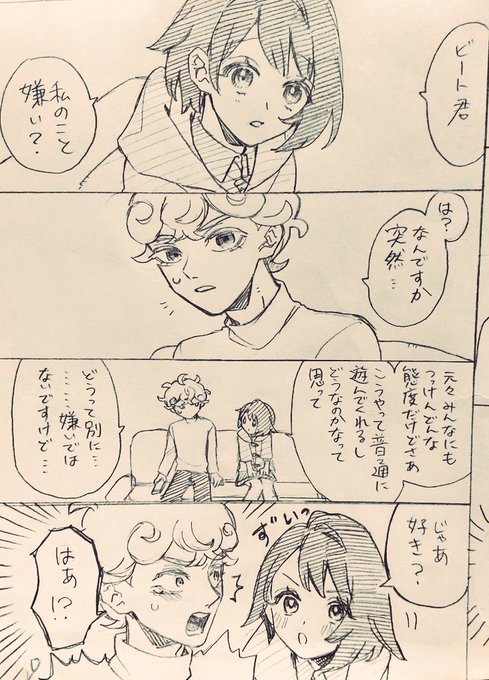 ビート君
私のこと
嫌い?
は?
なんですか
突然…
元々みんなにも
つっけんどんな
態度だけどさあ
こうやって普通に
遊んでくれるし
どうなのかなって
思って
どうって別に…
……嫌いでは
ないですけど…
じゃあ
好き?
ずいっ
はあ!?